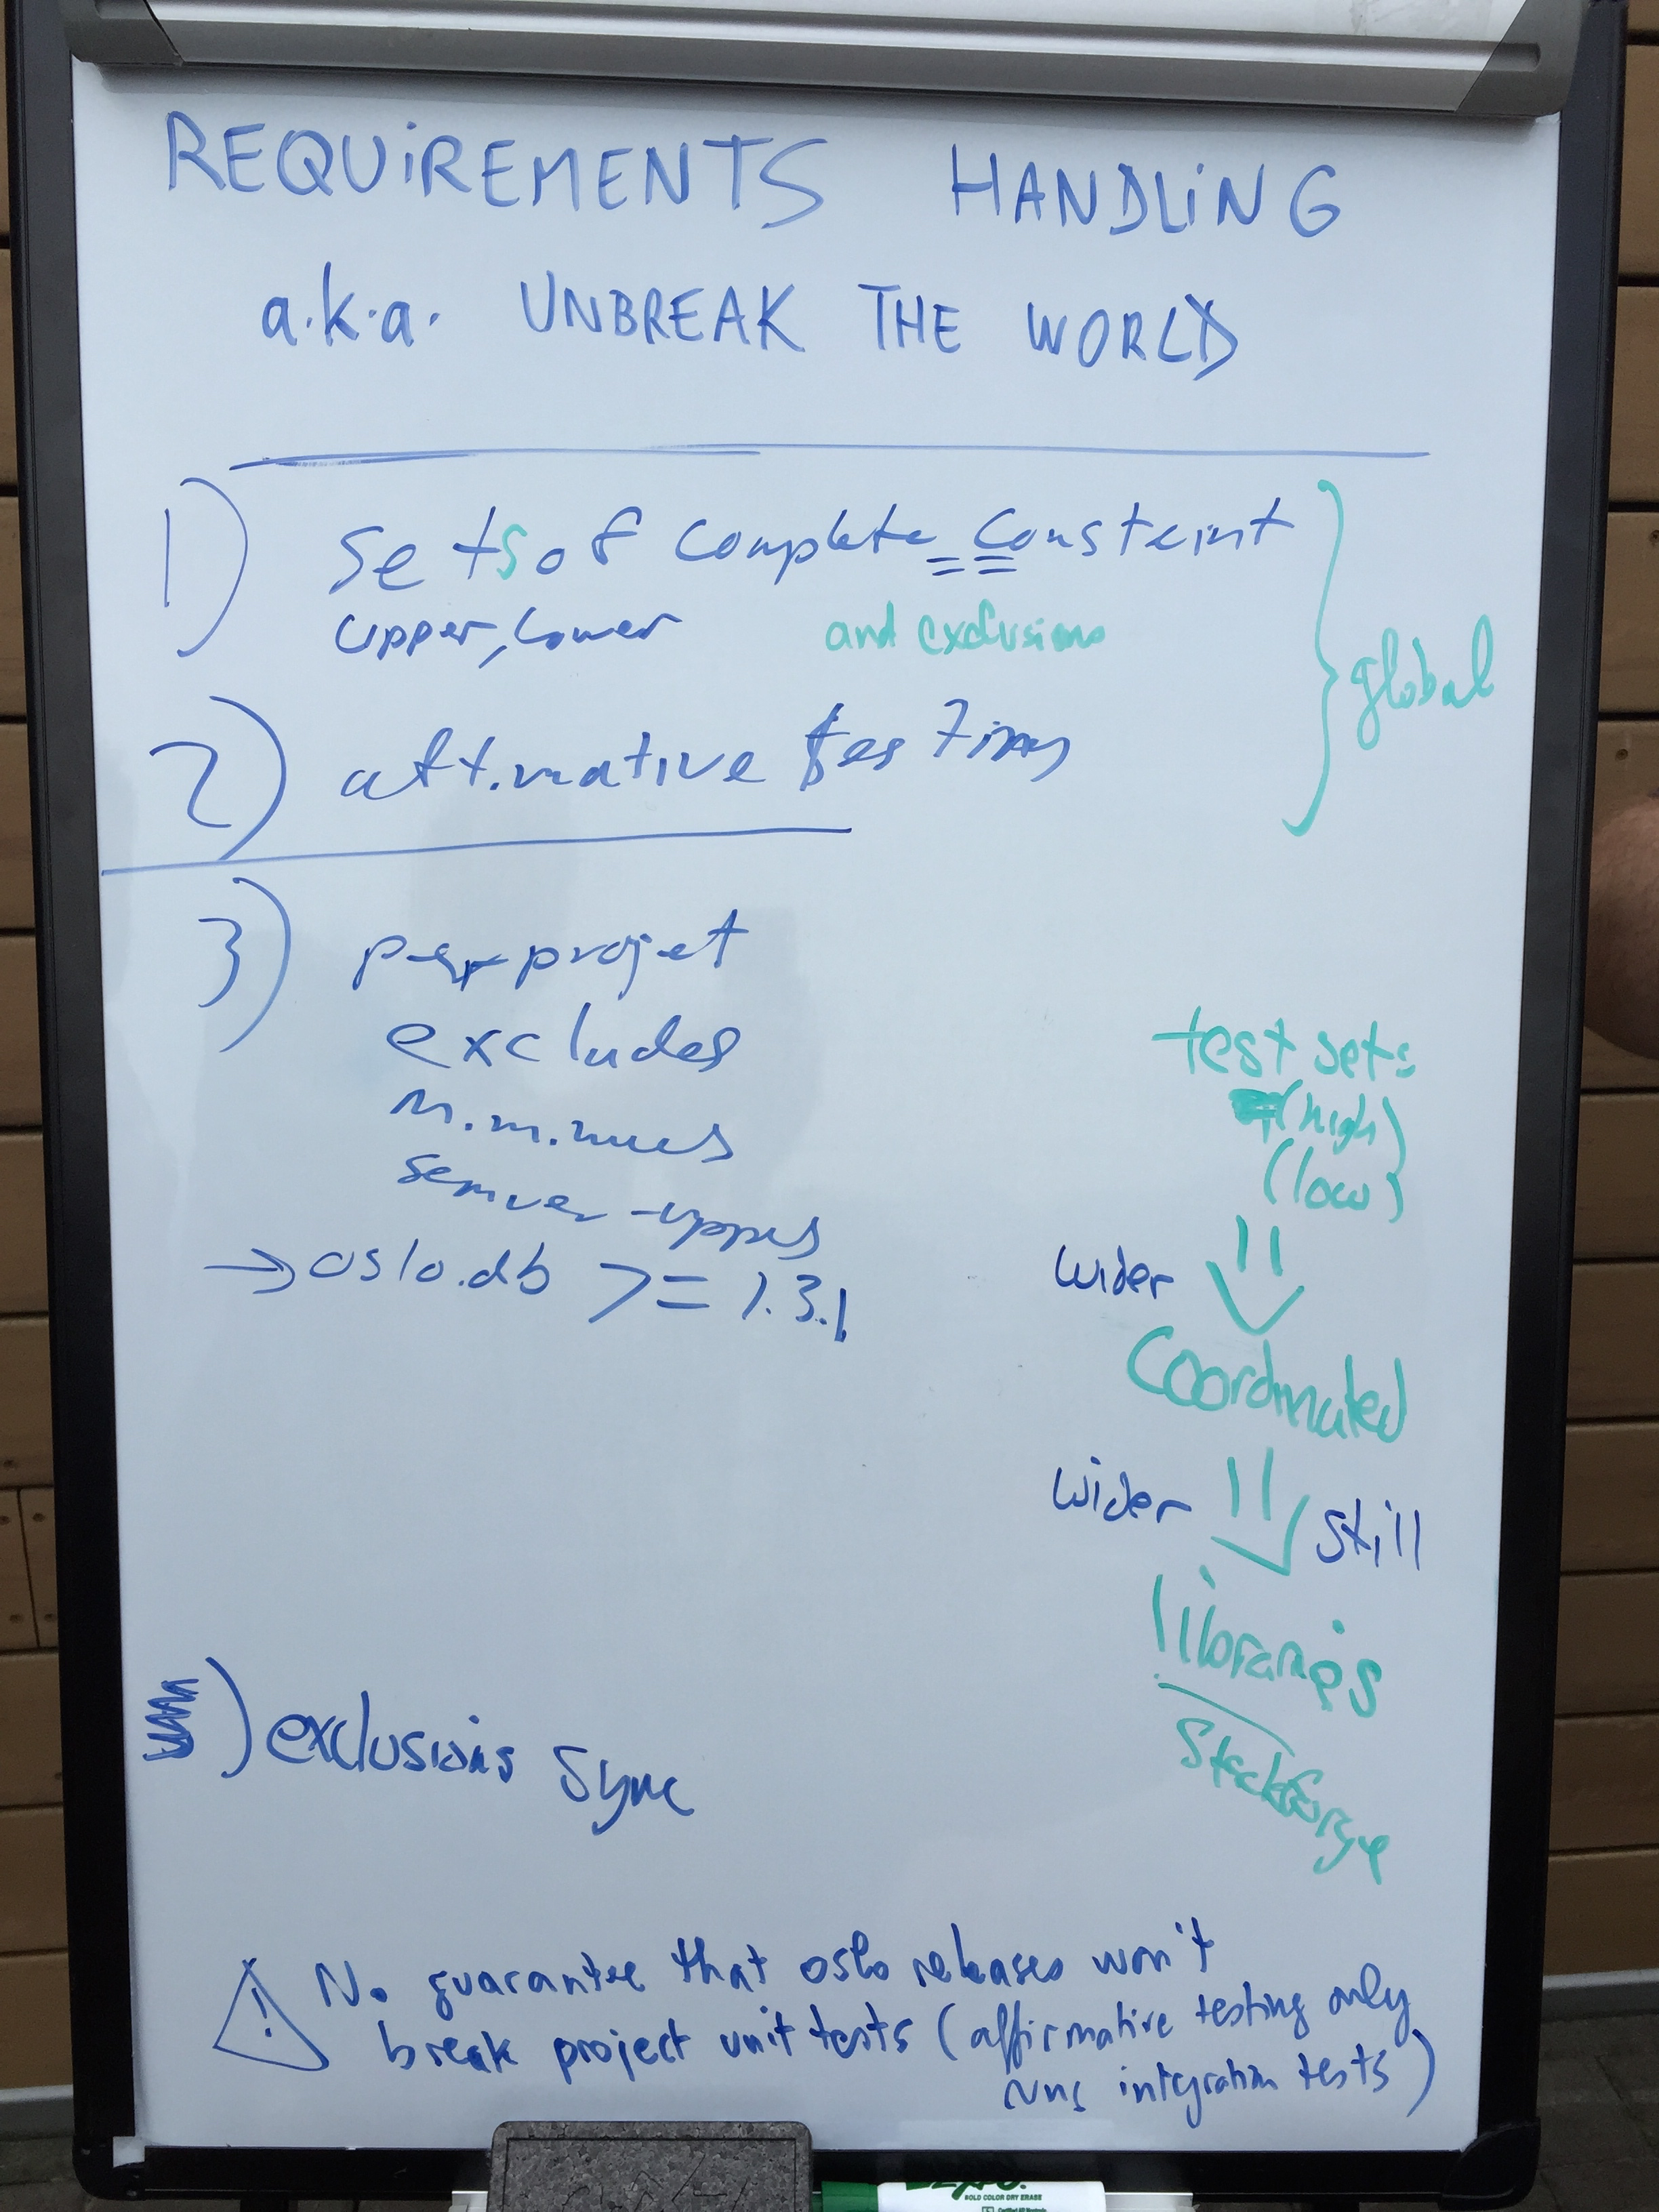 REQUIREMENTS HANDLING
a.k.a. UNBREAK THE WORLD
1) Sets of Complete == Constraint
upper, lower and exclusions
global
2) affirmative testing
3) per project
excludes
minimums
semver-uppers
→ oslo.db >= 1.3.1
test sets
(high)
(low)
wider
Coordinated
wider still
libraries
stackforge
) exclusions sync
! No guarantee that oslo releases won't
break project unit tests (affirmative testing only
runs integration tests)
BOLD COLOR DRY ERASE